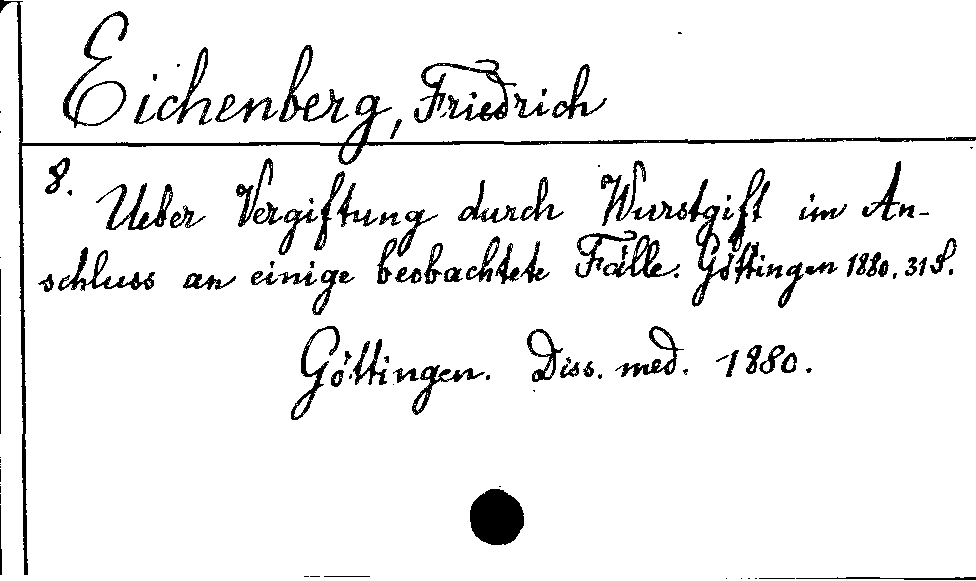 Eichenberg, Friedrich
8.
Ueber Vergiftung durch Wurstgift im An-
schluss an einige beobachtete Fälle. Göttingen 1880. 31 S.
Göttingen. Diss. med. 1880.